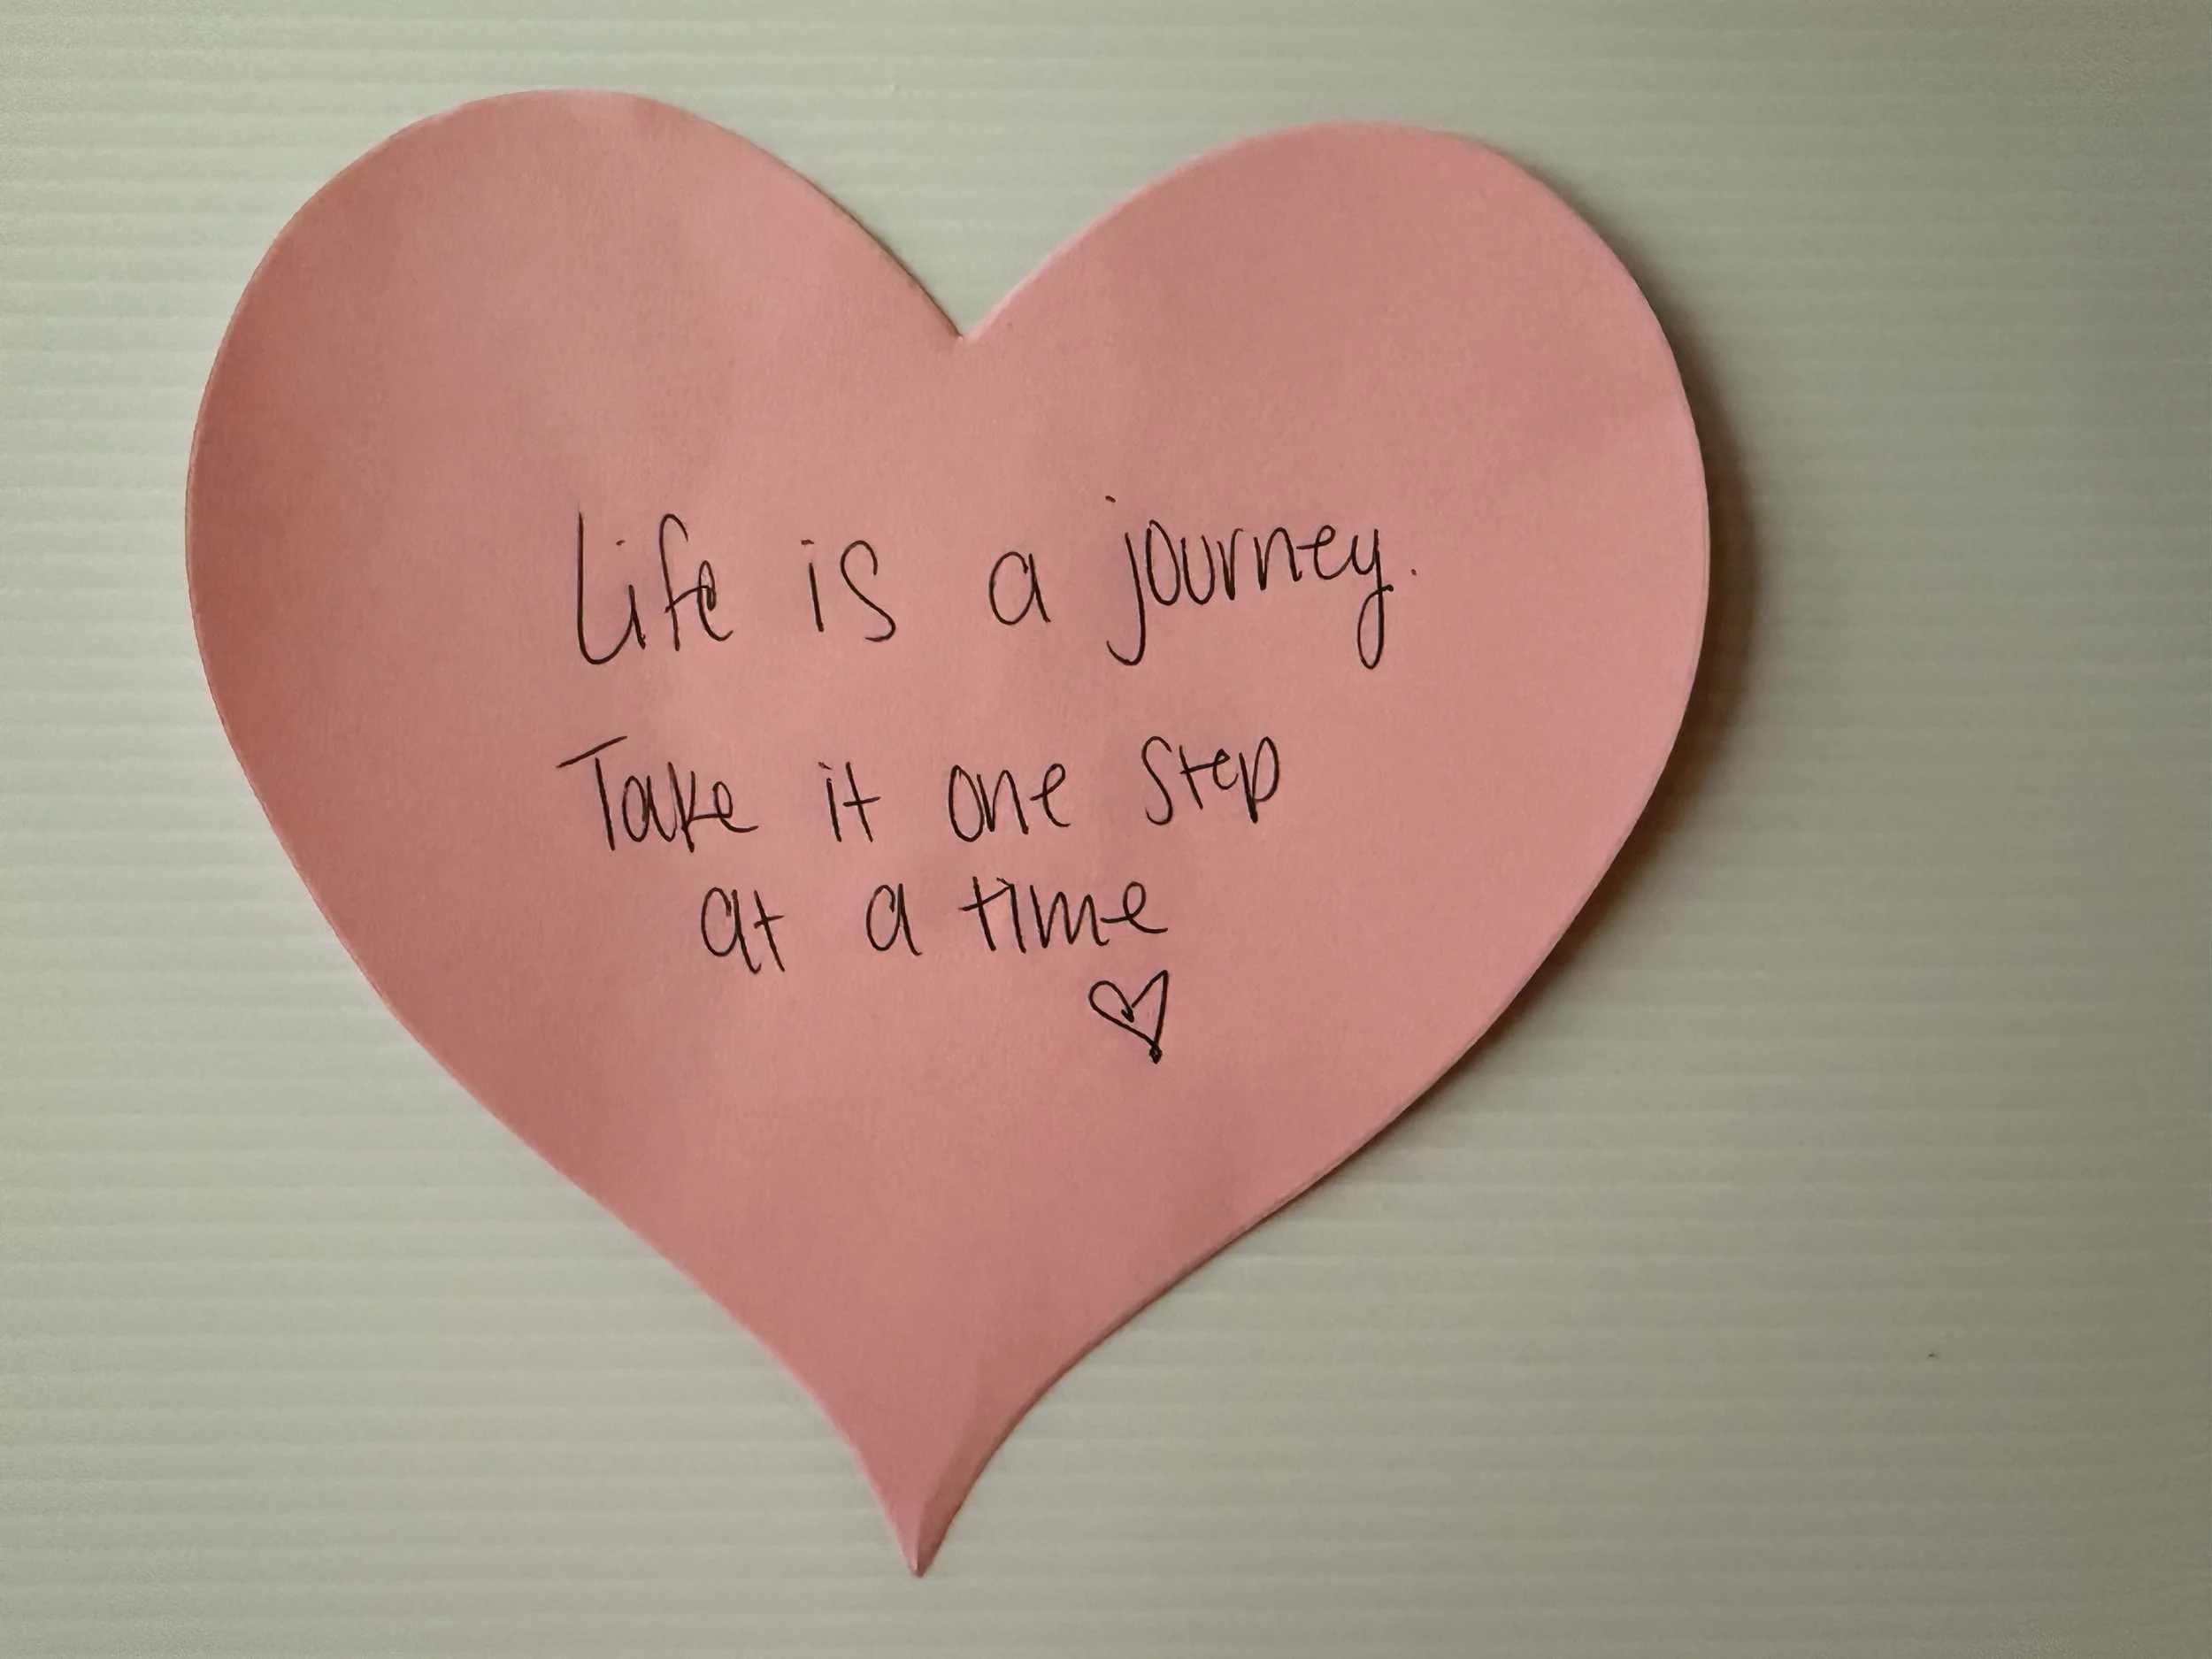 Life is a journey.
Take it one step
at a time